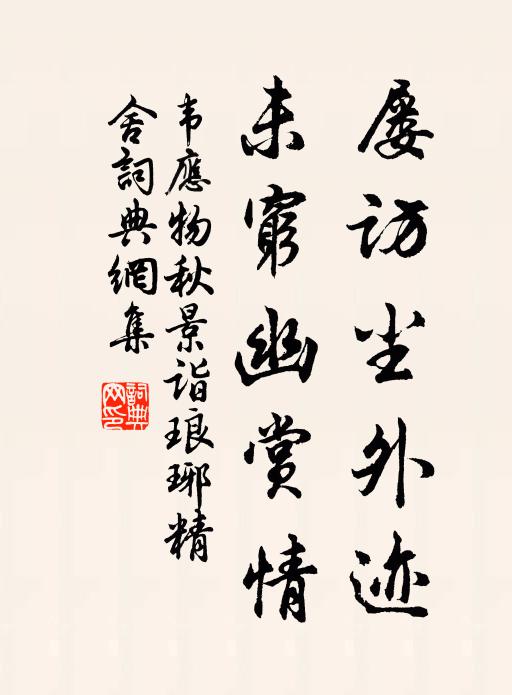 屡访尘外迹
未穷幽赏情
韦應物秋景詣琅琊精
舍詞典網集
詞典
网印